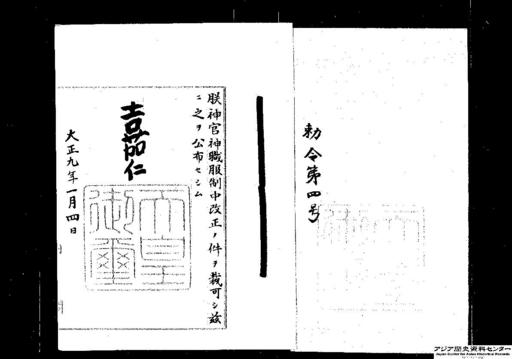 勅令第四号
朕神官神職服制中改正ノ件ヲ裁可シ茲
ニ之ヲ公布セシム
嘉仁
天皇
御璽
大正九年一月四日
アジア歴史資料センター
Japan Center for Asian Historical Records